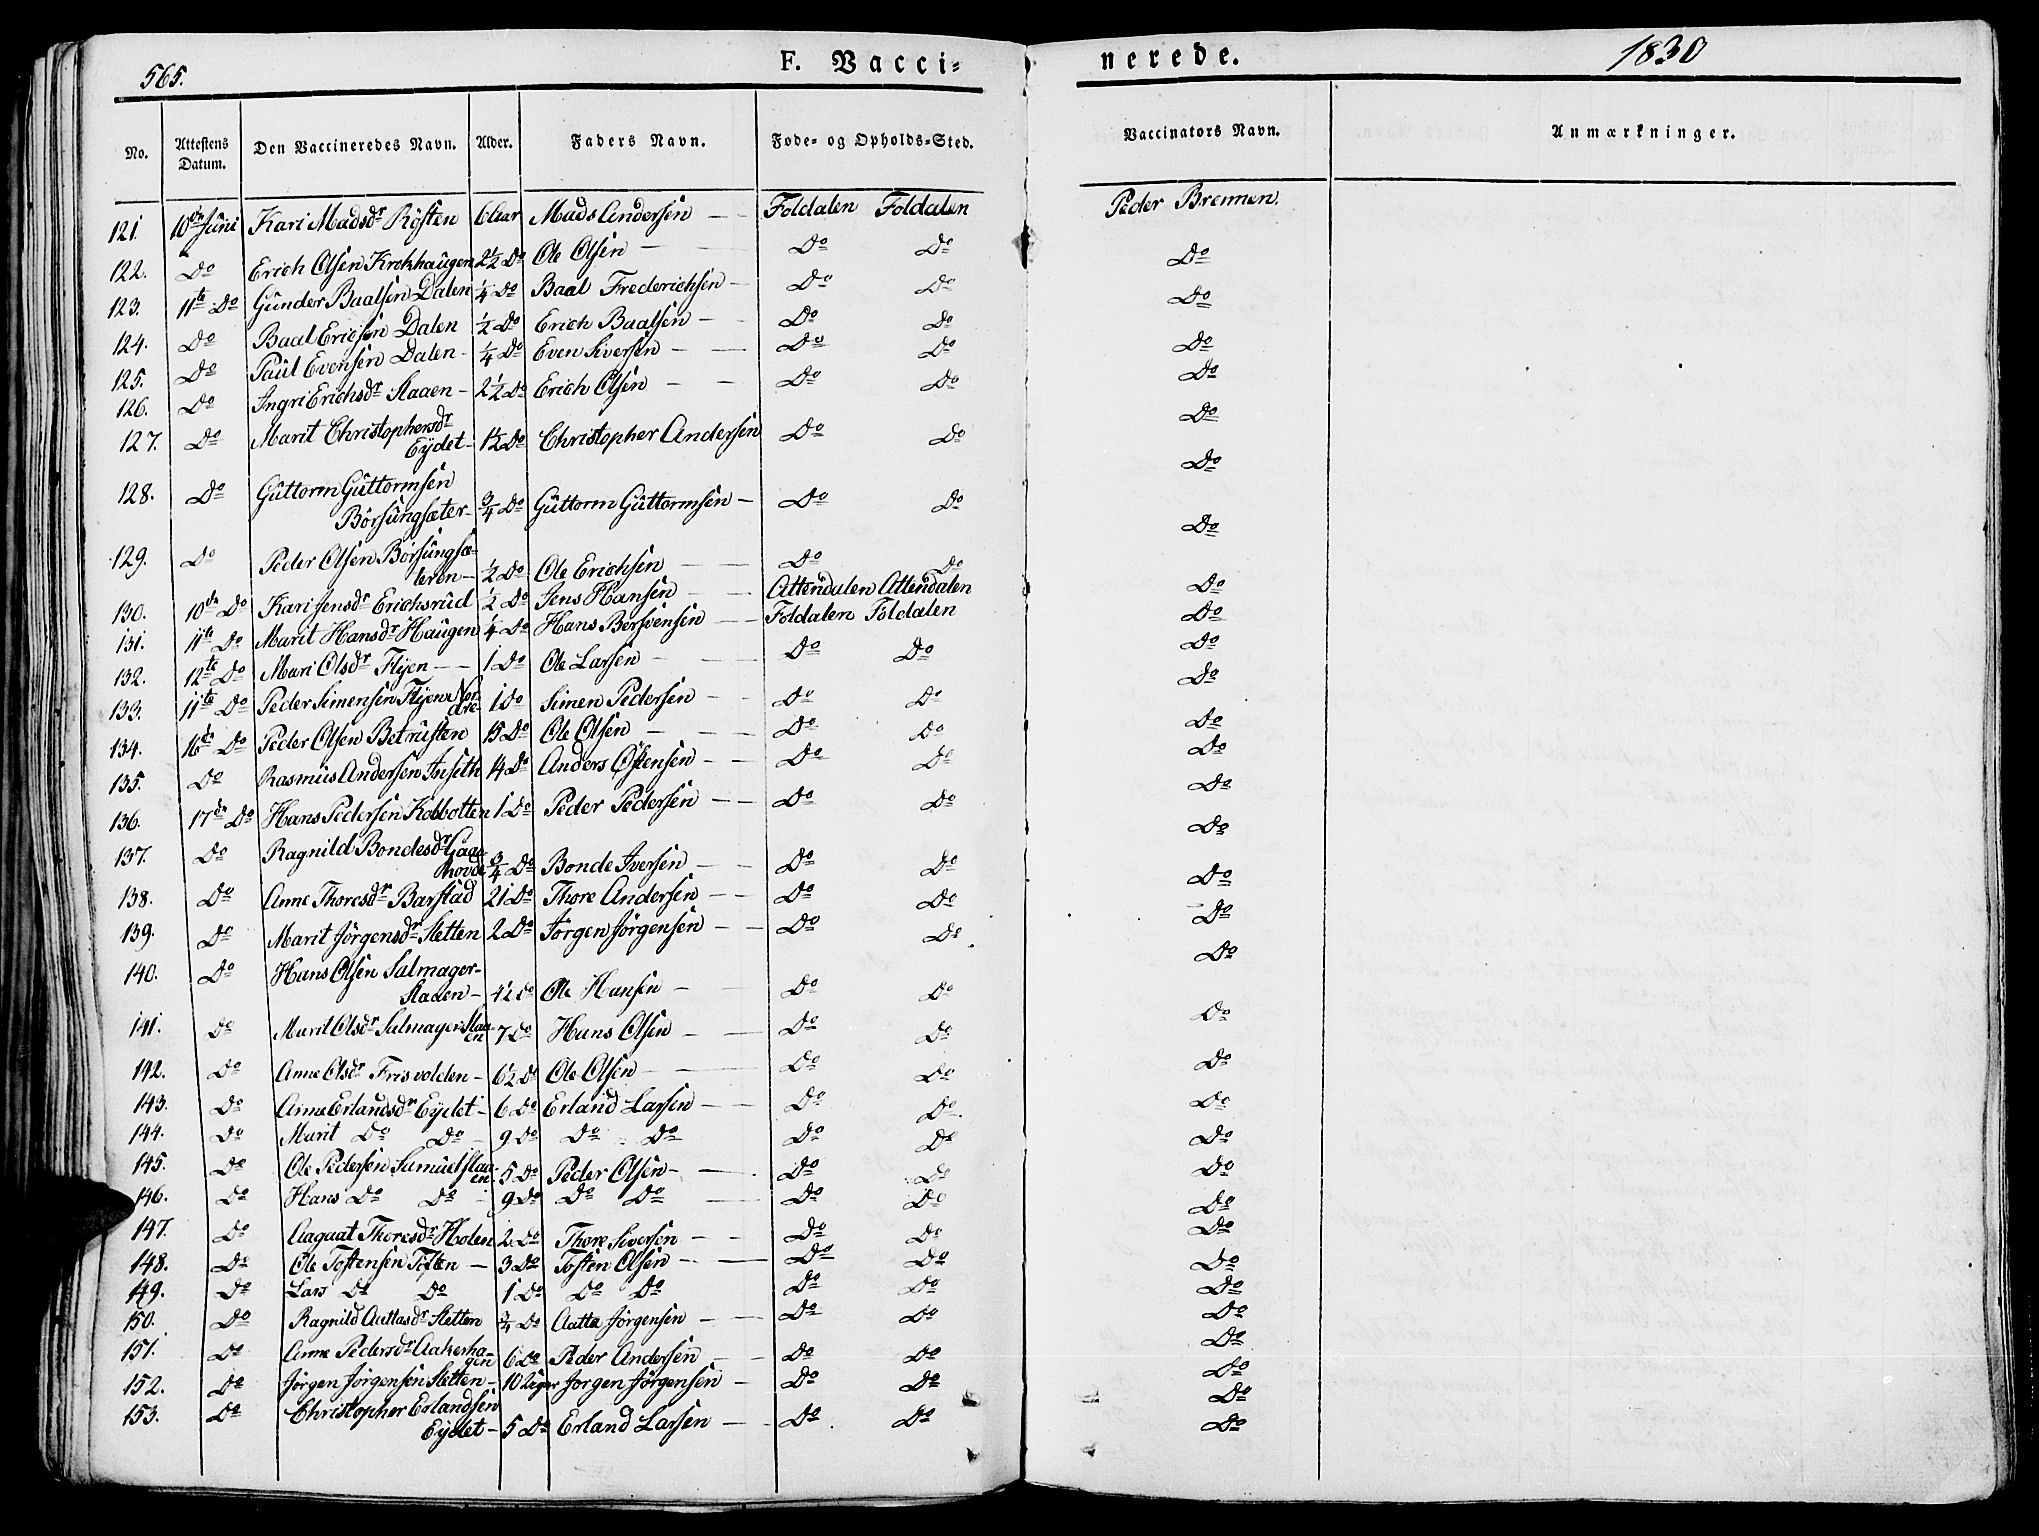 565.
F. Vacci-
nerede.
1830
No.
Attestens Datum.
Den Vaccineredes Navn.
Alder.
Faders Navn.
Føde- og Opholds-Sted.
Vaccinators Navn.
Anmærkninger.
121. 10de Juni Kari Madsdr Rÿsten 6 Aar Mads Andersen — Foldalen Foldalen Peder Brennen.
122. Do Erich Olsen Krokhaugen 2½ Do Ole Olsen — Do Do Do
123. 11te Do Gunder Baalsen Dalen ¼ Do Baal Frederichsen — Do Do Do
124. Do Baal Ericsen Dalen ½ Do Erich Baalsen — Do Do Do
125. Do Paul Evensen Dalen - ¼ Do Even Siversen — Do Do Do
126. Do Ingri Erichsdr Slaaen - 2½ Do Erich Olsen — Do Do Do
127. Do Marit Christophersdr
Eÿdet - 1½ Do Christopher Andersen Do Do Do
128. Do Guttorm Guttormsen
Börsungsæter - ¾ Do Guttorm Guttormsen — Do Do Do
129. Do Peder Olsen Börsungsæ-
teren - ½ Do Ole Erichsen — Do Do Do
130. 10de Do Kari Jensdr Erichsrud ½ Do Jens Hansen — Attendalen Attendalen Do
131. 11te Do Marit Hansdr Haugen ¼ Do Hans Bersvensen — Foldalen Foldalen Do
132. 12te Do Mari Olsdr Flÿen — 1 Do Ole Larsen — Do Do Do
133. 11te Do Peder Simensen Flÿen 1 Do Simen Pedersen — Do Do Do
134. 16de Do Peder Olsen Betrusten 15 Do Ole Olsen — Do Do Do
135. Do Rasmus Andersen Inseth 14 Do Anders Östensen — Do Do Do
136. 17de Do Hans Pedersen Kobbotten 1 Do Peder Pedersen — Do Do Do
137. Do Ragnild Bondesdr Gaas
hovde ¾ Do Bonde Iversen — Do Do Do
138. Do Anne Thoresdr Barstad 21 Do Thore Andersen — Do Do Do
139. Do Marit Jörgensdr Sletten 2 Do Jörgen Jörgensen — Do Do Do
140. Do Hans Olsen Salmager-
slaaen - 4½ Do Ole Hansen — Do Do Do
141. Do Marit Olsdr Salmagerslaa
en 7 Do Hans Olsen — Do Do Do
142. Do Anne Olsdr Frisvolden - 6½ Do Ole Olsen — Do Do Do
143. Do Anne Erlandsdr Eÿdet - 6 Do Erland Larsen — Do Do Do
144. Do Marit Do Do - 9 Do Do Do Do Do Do
145. Do Ole Pedersen Samuelslaa
en 5 Do Peder Olsen — Do Do Do
146. Do Hans Do Do - 9 Do Do Do — Do Do Do
147. Do Aagaat Thoresdr Holen 2 Do Thore Siversen — Do Do Do
148. Do Ole Tostensen Toften — 3 Do Tosten Olsen — Do Do Do
149. Do Lars Do Do 1 Do Do Do Do Do Do
150. Do Ragnild Aattasdr Sletten ¾ Do Aatta Jörgensen — Do Do Do
151. Do Anne Pedersdr Aakerha-
gen 6 Do Peder Andersen — Do Do Do
152. Do Jörgen Jörgensen Sletten - 10 Uger Jorgen Jörgensen — Do Do Do
153. Do Christopher Erlandsen
Eÿdet - 5 Do Erland Larsen — Do Do Do